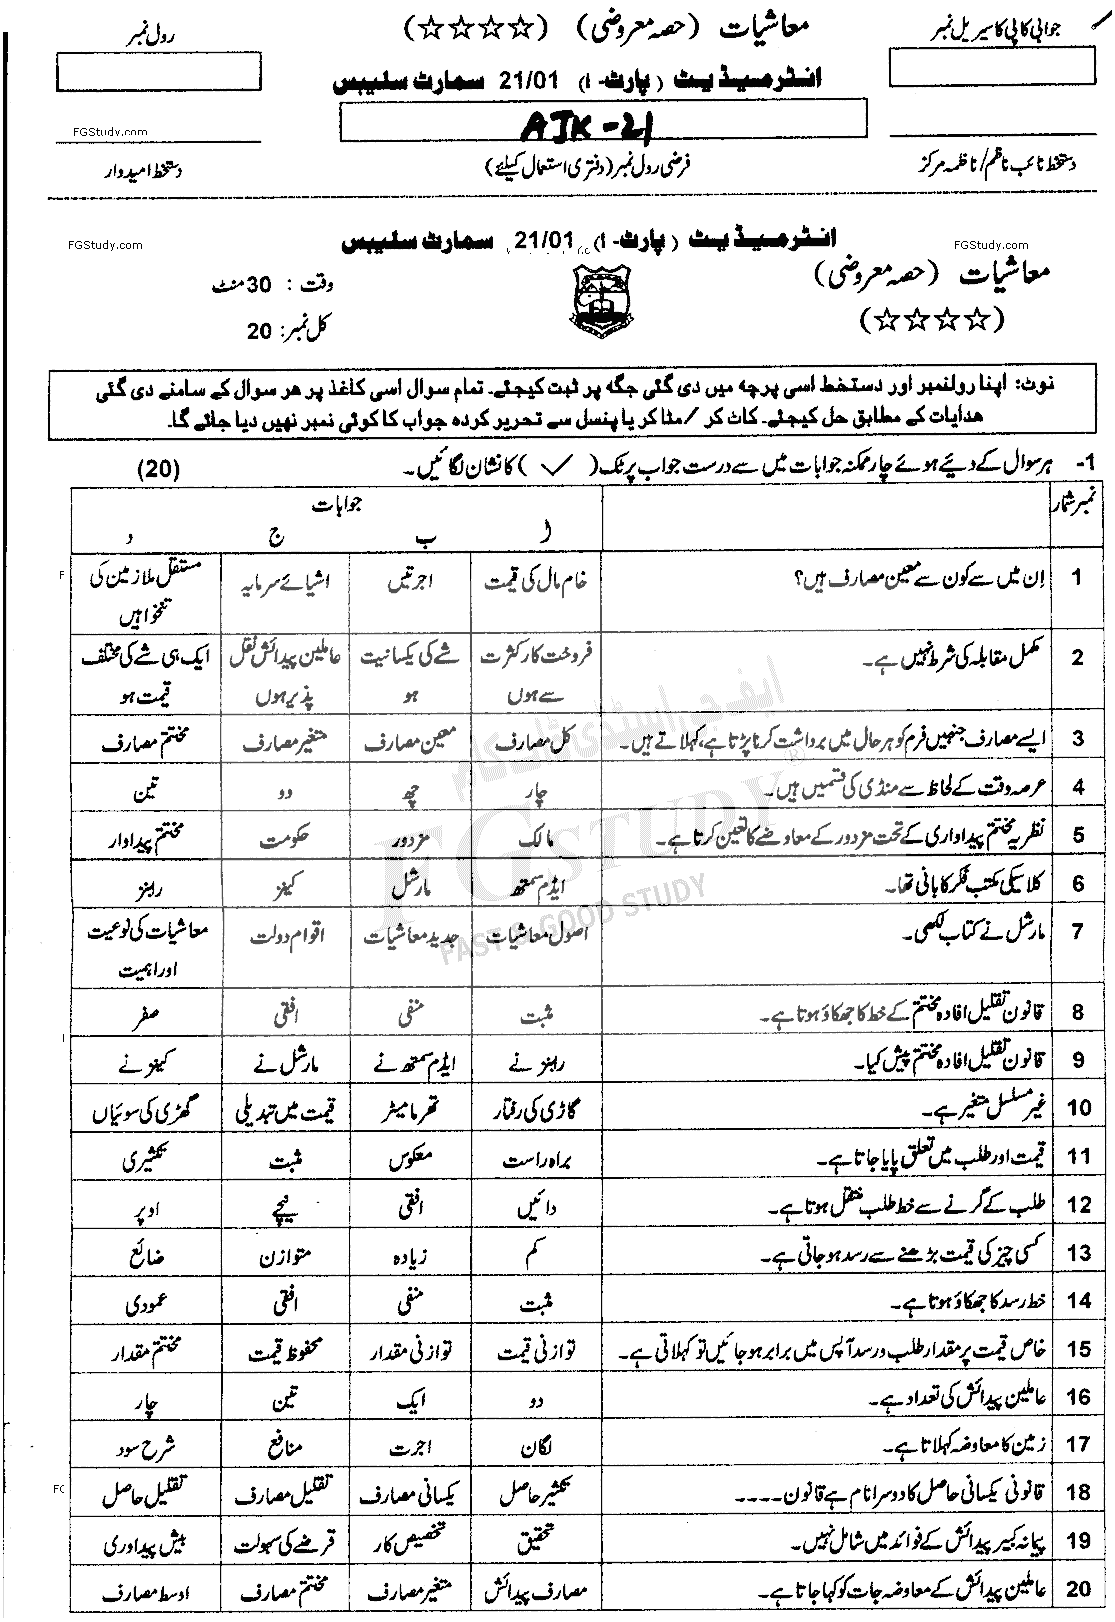 معاشیات (حصہ معروضی) (☆☆☆☆)
جوابی کاپی کا سیریل نمبر
رول نمبر
انٹرمیڈیٹ (پارٹ-I) 21/01 سمارٹ سلیبس
AJK-21
FGStudy.com
دستخط نائب ناظم/ناظمہ مرکز
فرضی رول نمبر (دفتری استعمال کیلئے)
دستخط امیدوار
FGStudy.com
انٹرمیڈیٹ (پارٹ-I) 21/01 سمارٹ سلیبس
FGStudy.com
معاشیات (حصہ معروضی)
وقت : 30 منٹ
(☆☆☆☆)
کل نمبر: 20
نوٹ: اپنا رولنمبر اور دستخط اسی پرچہ میں دی گئی جگہ پر ثبت کیجئے۔ تمام سوال اسی کاغذ پر ھر سوال کے سامنے دی گئی
ھدایات کے مطابق حل کیجئے۔ کاٹ کر /مٹا کر یا پنسل سے تحریر کردہ جواب کا کوئی نمبر نہیں دیا جائے گا۔
1- ہر سوال کے دیئے ہوئے چار ممکنہ جوابات میں سے درست جواب پر ٹک (✓) کا نشان لگائیں۔ (20)
نمبر شمار جوابات
ا ب ج د
1 اِن میں سے کون سے معین مصارف ہیں؟ خام مال کی قیمت اجرتیں اشیائے سرمایہ مستقل ملازمین کی
تنخواہیں
2 مکمل مقابلہ کی شرط نہیں ہے۔ فروخت کار کثرت شے کی یکسانیت عاملین پیدائش نقل ایک ہی شے کی مختلف
سے ہوں ہو پذیر ہوں قیمت ہو
3 ایسے مصارف جنہیں فرم کو ہر حال میں برداشت کرنا پڑتا ہے، کہلاتے ہیں۔ کل مصارف معین مصارف متغیر مصارف مختتم مصارف
4 عرصہ وقت کے لحاظ سے منڈی کی قسمیں ہیں۔ چار چھ دو تین
5 نظریہ مختتم پیداواری کے تحت مزدور کے معاوضے کا تعین کرتا ہے۔ مالک مزدور حکومت مختتم پیداوار
6 کلاسیکی مکتب فکر کا بانی تھا۔ ایڈم سمتھ مارشل کینز رابنز
7 مارشل نے کتاب لکھی۔ اصول معاشیات جدید معاشیات اقوام دولت معاشیات کی نوعیت
اور اہمیت
8 قانون تقلیل افادہ مختتم کے خط کا جھکاؤ ہوتا ہے۔ مثبت منفی افقی صفر
9 قانون تقلیل افادہ مختتم پیش کیا۔ رابنز نے ایڈم سمتھ نے مارشل نے کینز نے
10 غیر مسلسل متغیر ہے۔ گاڑی کی رفتار تھرمامیٹر قیمت میں تبدیلی گھڑی کی سوئیاں
11 قیمت اور طلب میں تعلق پایا جاتا ہے۔ براہ راست معکوس مثبت تکثیری
12 طلب کے گرنے سے خط طلب منتقل ہوتا ہے۔ دائیں افقی نیچے اوپر
13 کسی چیز کی قیمت بڑھنے سے رسد ہو جاتی ہے۔ کم زیادہ متوازن ضائع
14 خط رسد کا جھکاؤ ہوتا ہے۔ مثبت منفی افقی عمودی
15 خاص قیمت پر مقدار طلب و رسد آپس میں برابر ہو جائیں تو کہلاتی ہے۔ توازنی قیمت توازنی مقدار محفوظ قیمت مختتم مقدار
16 عاملین پیدائش کی تعداد ہے۔ دو ایک تین چار
17 زمین کا معاوضہ کہلاتا ہے۔ لگان اجرت منافع شرح سود
18 قانونی یکسانی حاصل کا دوسرا نام ہے قانون ---- تکثیر حاصل یکسانی مصارف تقلیل مصارف تقلیل حاصل
19 پیمانہ کبیر پیدائش کے فوائد میں شامل نہیں۔ تحقیق تخصیص کار قرضے کی سہولت بیش پیداوری
20 عاملین پیدائش کے معاوضہ جات کو کہا جاتا ہے۔ مصارف پیدائش متغیر مصارف مختتم مصارف اوسط مصارف
ایف جی اسٹڈی ڈاٹ کام
FGSTUDY
FAST & GOOD STUDY